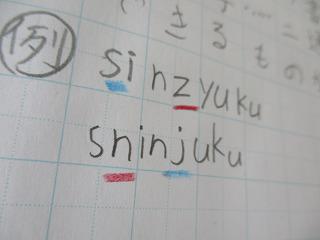 例
sinzyuku
shinjuku